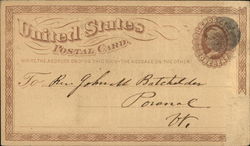 United States
Postal Card.
WRITE THE ADDRESS ONLY ON THIS SIDE — THE MESSAGE ON THE OTHER
To Rev. John M Batchelder
Vt.